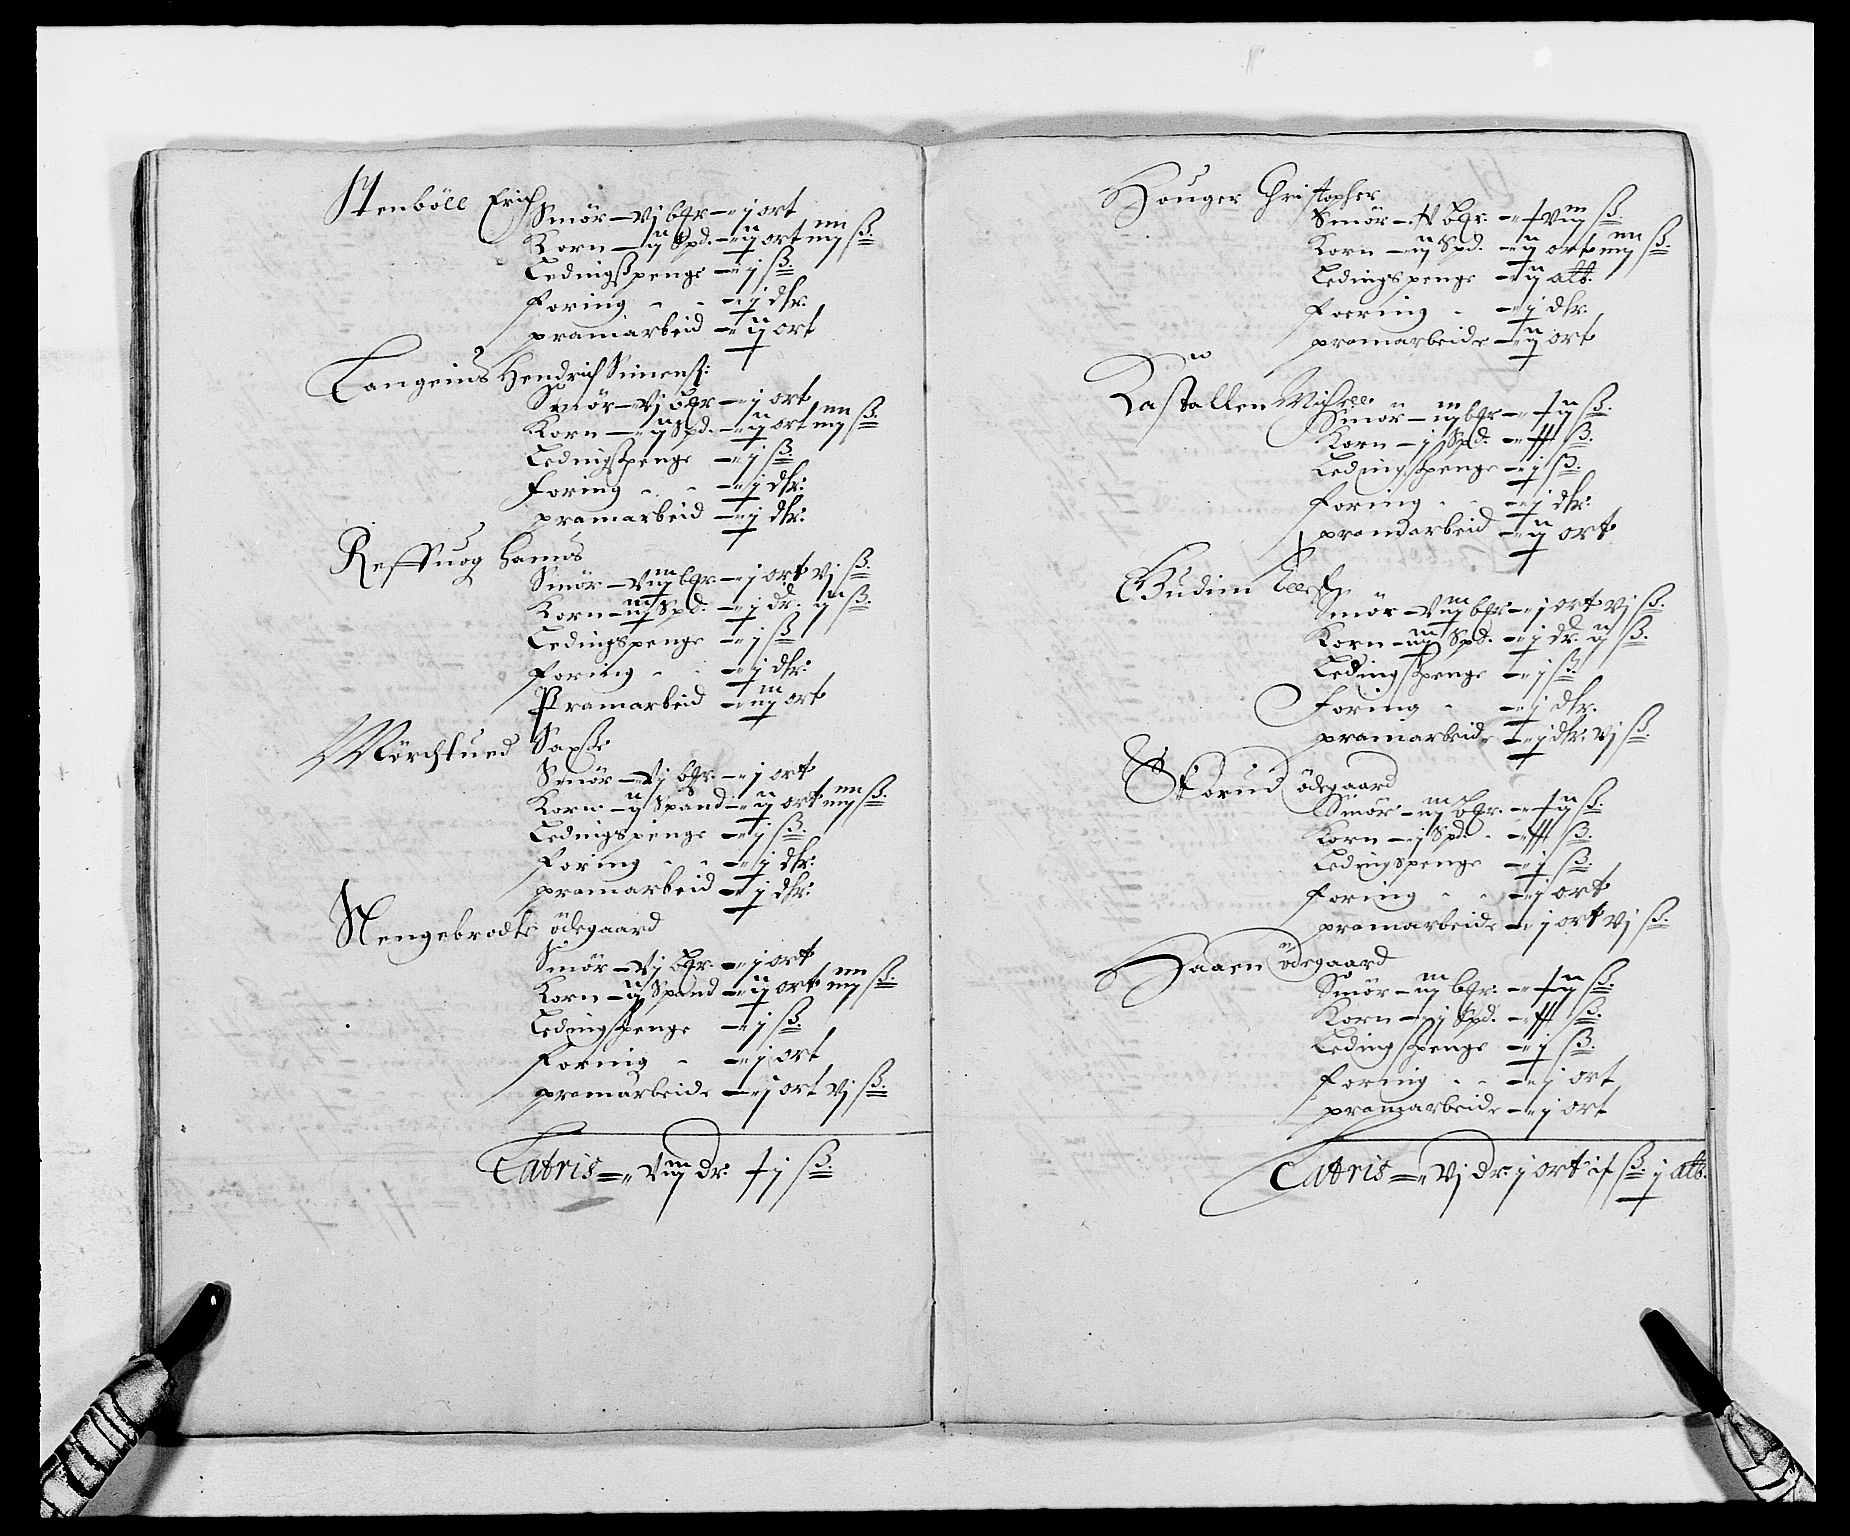 Stenböll Erich
Smör – vj bgr – j ort
Korn – ij Spd. – ij ort iiij ß.
Ledingßpenge – j ß
Foring – – j dlr.
pramarbeid – ij ort
Langeius Hendrich Simenß:
Smör – vj bgr – j ort
Korn – ij Spd. – ij ort iiij ß.
Ledingßpenge – j ß.
Foring – – j dlr:
pramarbeid – j dlr:
Reffuog Hanns
Smör – viij bgr – j ort vj ß.
Korn – iij Spd: – j dr. ij ß.
Ledingspenge – j ß
Foring – – j dlr:
Pramarbeid – iij ort
Mörchtued Saxße
Smör – vj bgr. – j ort
Korn – ij Spand – ij ort iiij ß.
Ledingspenge – j ß.
Foring – – j dlr:
pramarbeid – j dlr:
Nengebrodte ödegaard
Smör – vj bgr – j ort
Korn – ij Spand – ij ort iiij ß.
Ledingßpenge – j ß.
Foring – j ort
pramarbeide – j ort vj ß.
Latris = viij dr: xj ß.
Houger Christopher
Smör – bgr. – xviij ß.
Korn – ij Spd. – ij ort iiij ß.
Ledingspenge – ij alb.
Foering – j dlr.
pramarbeide – ij ort
Rastallen Michell
Smör – iij bgr – xij ß.
Korn – j Spd. – ß.
Ledingßpenge – j ß.
Foring – – j dlr:
pramarbeid – ij ort
Gudim
Smör – viij bgr: – j ort vj ß.
Korn – iij Spd. – j dr. ij ß.
Ledingßpenge – j ß.
Foring – j dlr.
pramarbeide – j dlr: vj ß.
Skorud ödegaard
Smör – iij bgr. – xij ß.
Korn – j Spd. – ß.
Ledingspenge – j ß.
Foring – – j ort
pramarbeide – j ort vj ß.
Haaen ödegaard
Smör – iij bgr. – xij ß.
Korn – j Spd. – ß.
Ledingßpenge – j ß.
Foring – – j ort
pramarbeide – j ort
Latris = vj dr: j ort ß. j alb.